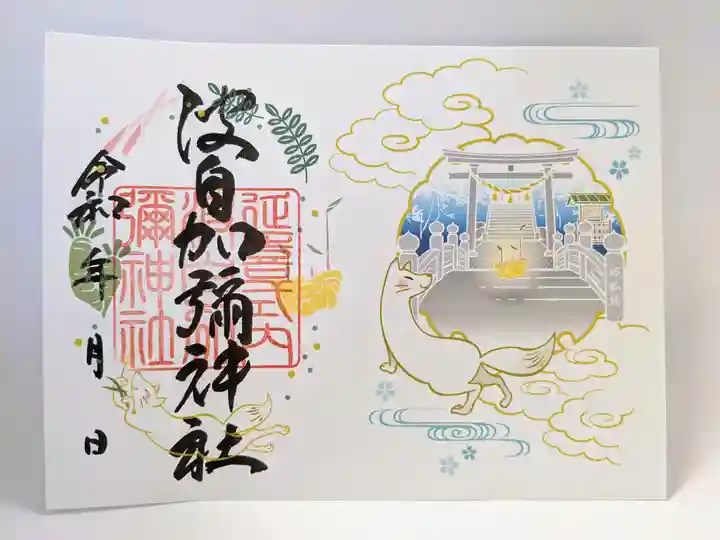 波自加彌神社
延喜式内
波自加
彌神社
令和 年 月 日